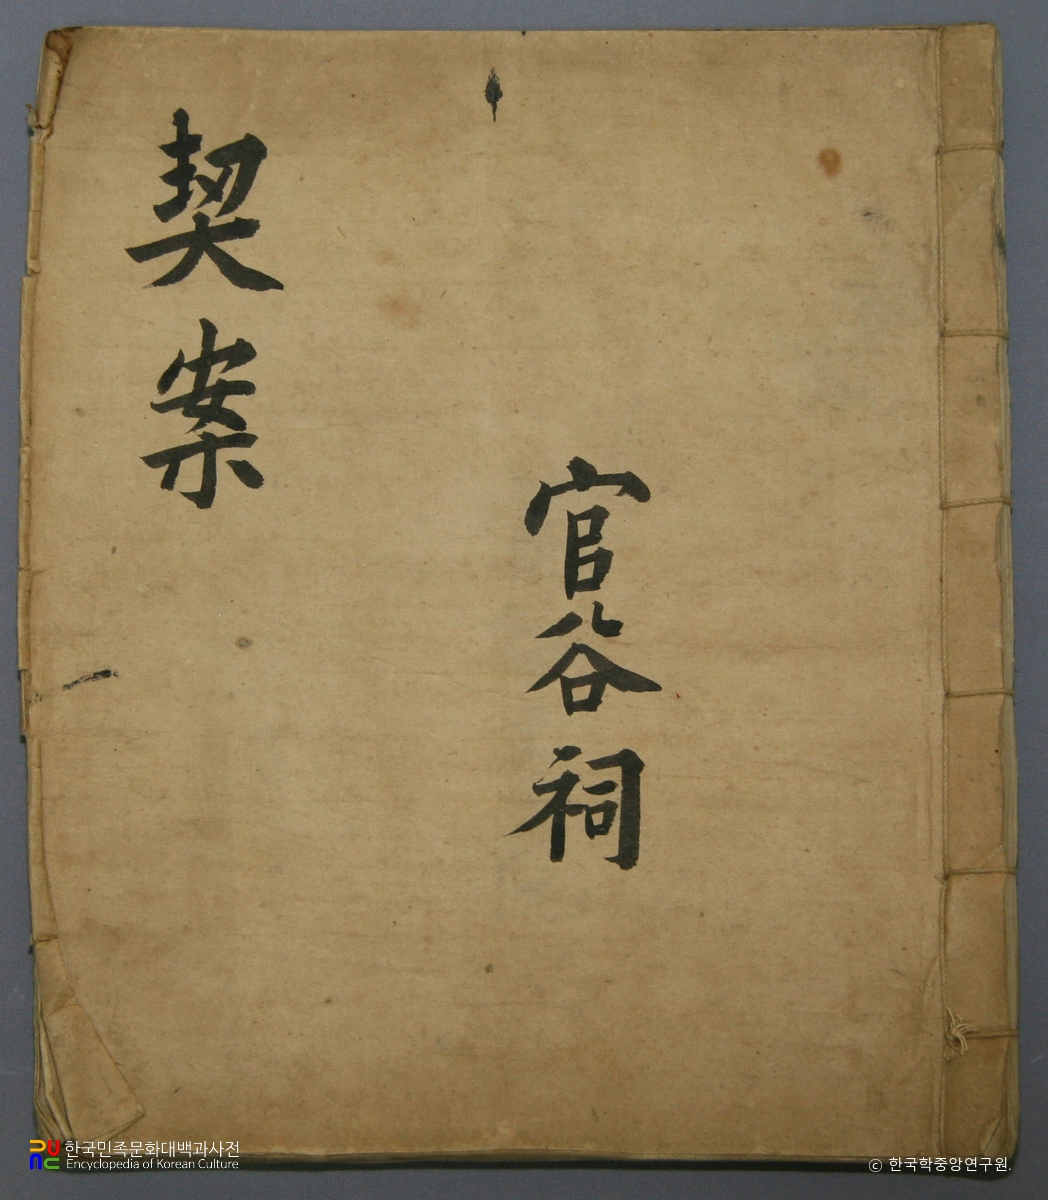 官谷祠
契案
한국민족문화대백과사전
Encyclopedia of Korean Culture
© 한국학중앙연구원.